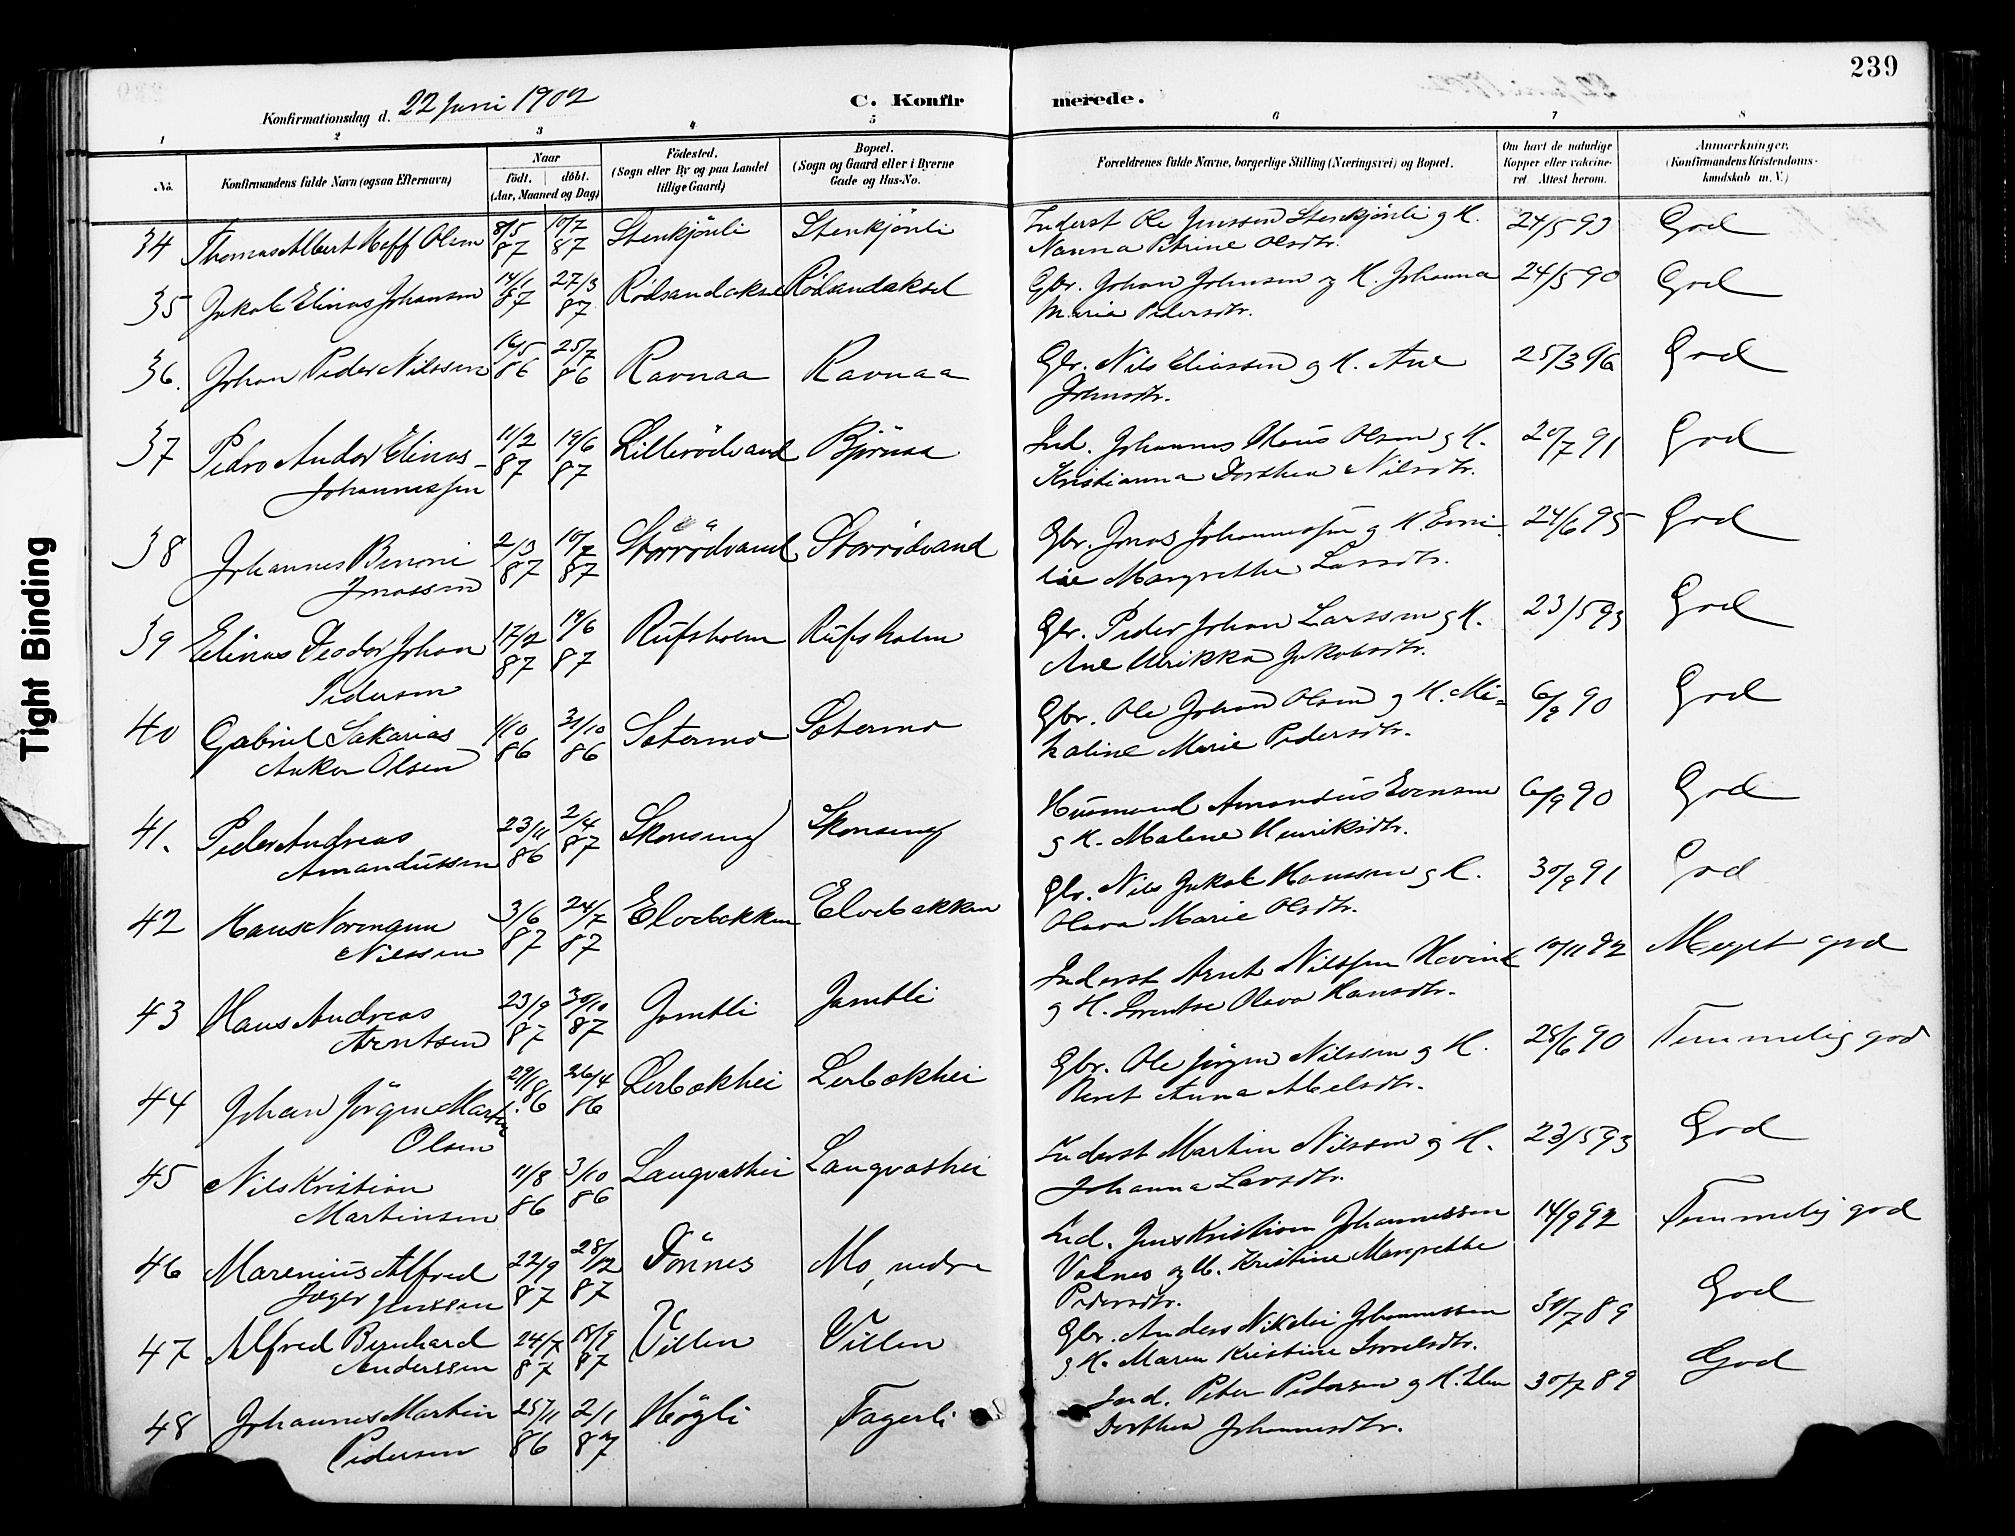 239
Konfirmationsdag d. 22 Juni 1902
C. Konfirmerede.
1 2 3 4 5 6 7 8
No. Konfirmandens fulde Navn (ogsaa Efternavn) Naar födt. döbt. (Aar, Maaned og Dag) Födested. (Sogn eller By og paa Landet tillige Gaard) Bopæl. (Sogn og Gaard eller i Byerne Gade og Hus-No. Forældrenes fulde Navne, borgerlige Stilling (Næringsvei) og Bopæl. Om havt de naturlige Kopper eller vaccineret Attest herom. Anmærkninger. (Konfirmandens Kristendomskundskab m. V.)
34 Thomas Albert Hoff Olsen 8/5 87 10/7 87 Stenkjönli Stenkjönli Inderst Ole Jenssen Stenkjönli g H. Nanna Petrine Olsdtr. 24/5 93 God
35 Jakob Elinas Johansen 14/1 87 27/3 87 Rödsandaksel Rödsandaksel Gbr. Johan Johnsen og H. Johanna Maria Pedersdtr. 24/5 90 God
36. Johan Peder Nilssen 16/5 86 25/7 86 Ravnaa Ravnaa Gbr. Nils Eliassen g H. Ane Johnsdtr. 25/3 96 God
37 Pedro Andor Elinas Johannessen 11/2 87 19/6 87 Lillerödvand Björnaa Ind. Johannes Olaus Olsen g H. Kristianna Dorthea Nilsdtr. 20/7 91 God
38 Johannes Benoni Jonassen 2/3 87 10/7 87 Storrödvand Storrödvand Gbr. Jonas Johannessen g H. Emilie Margrethe Larsdtr. 24/6 95 God
39 Elinas Teodor Johan Pedersen 17/2 87 19/6 87 Rufsholm Rufsholm Gbr. Peder Johan Larssen g H. Ane Ulrikka Jakobsdtr. 23/5 93 God
40 Gabriel Sakarias Anker Olsen 1/10 86 31/10 86 Sætermo Sætermo Gbr. Ole Johan Olsen g H. Mikaline Marie Pedersdtr. 6/9 90 God
41. Peder Andreas Amandussen 23/11 86 2/4 87 Skonseng Skonseng Husmand Amandus Evensen g H. Malene Henriksdtr. 6/9 90 God
42 Hans Normann Nilssen 3/6 87 24/7 87 Elvebakken Elvebakken Gbr. Nils Jakob Hanssen g H. Olava Marie Olsdtr. 30/9 91 God
43 Hans Andreas Arntsen 23/9 87 30/10 87 Jamtli Jamtli Inderst Arnt Nilssen Hevind g H. Lrentse Olava Hansdtr. 10/11 92 Meget god
44 Johan Jörgen Martin Olsen 29/1 86 26/4 86 Lerbækhei Lerbækhei Gbr. Ole Jörgen Nilssen g H. Beret Anna Abelsdtr. 28/6 90 Temmelig god
45 Nils Kristian Martinsen 11/8 86 3/10 86 Langvashei Langvashei Inderst Martin Nilssen g H. Johanna Larsdtr. 23/5 93 God
46 Marenius Alfred Jæger Jenssen 22/9 87 28/12 87 Dönnes Mo, nedre Ind. Jens Kristian Johannessen Valnes og H. Kristine Margrethe Pedersdtr. 14/9 92 Temmelig god
47 Alfred Bernhard Anderssen 24/7 87 18/9 87 Villen Villen Gbr. Anders Nikolai Johannessen g H. Maren Kristine Israelsdtr. 30/7 89 God
48 Johannes Martin Pedersen 25/11 86 2/1 87 Högli Fagerli Ind. Peter Pedersen g H. Elen Dorthea Johannesdtr. 30/7 89 God
Tight Binding